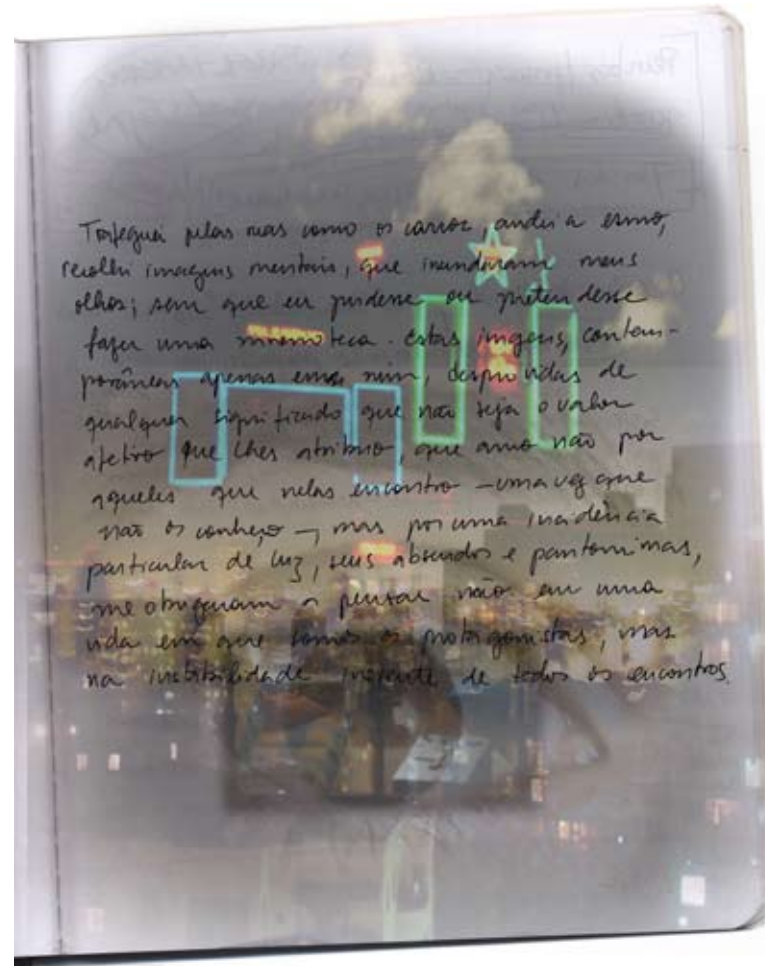 Trafeguei pelas ruas como os carros, andei a esmo,
recolhi imagens mentais, que inundaram meus
olhos; sem que eu pudesse ou pretendesse
fazer uma mnemoteca. Estas imgens, contem-
porâneas apenas em mim, desprovidas de
qualquer significado que não seja o valor
afetivo que lhes atribuo, que amo não por
aqueles que nelas encontro — uma vez que
não os conheço —, mas por uma incidência
particular de luz, seus absurdos e pantomimas,
me obrigaram a pensar não em uma
vida em que somos os protagonistas, mas
na instabilidade de todos os encontros.